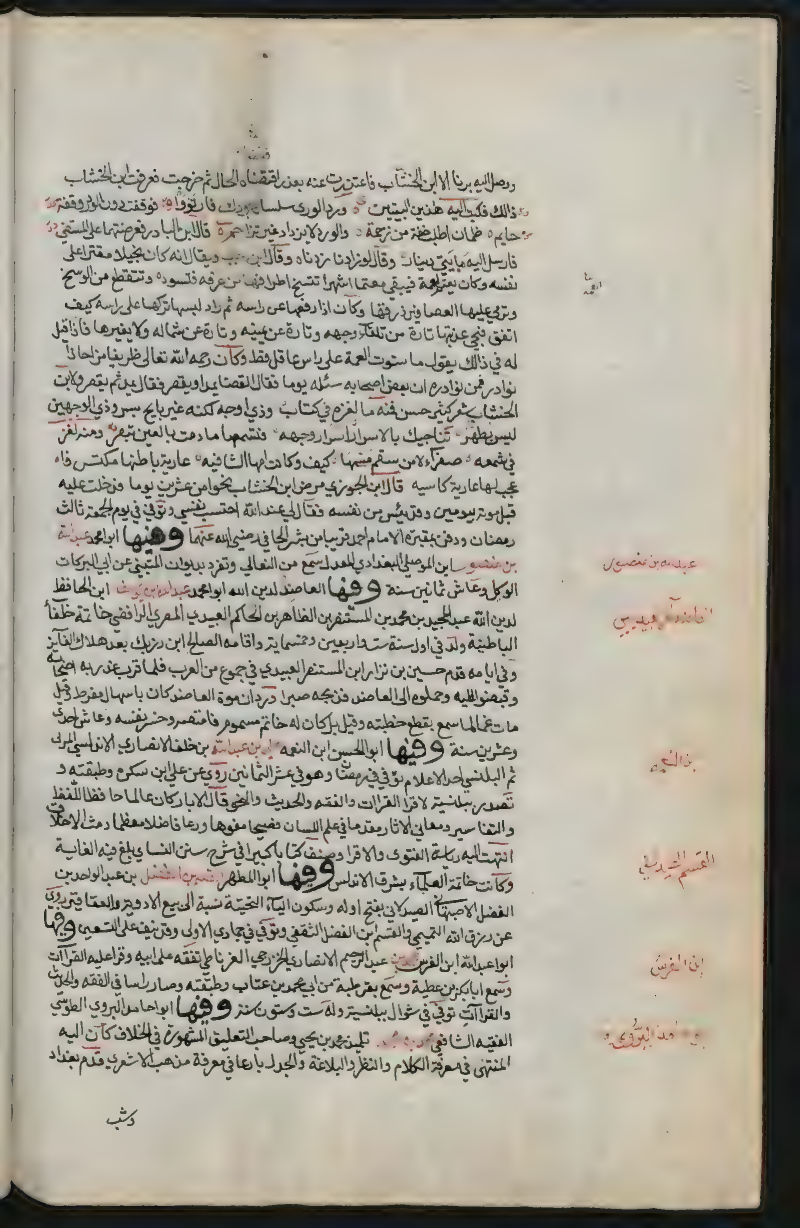 ووصل اليه برنا الا ابن الخشاب فاعتذرت عنه بعذر اقتضاه الحال ثم خرجت فعرفت ابن الخشاب
ذالك فكتب اليه هذين البيتين ورد الوري سلسال جودك فارتووا فوقفت دون الورد وقفة
حايم ظمان اطلب خفة من زحمة والورد لا يزداد غير تزاحم قال ابن البادر فعرضتها على المستنجد
فارسل اليه مايتي دينار وقال لو زادنا زدناه وقال ابن ويقال انه كان بخيلا مقترا على
نفسه وكان يعتم العمة فيبقى معتما اشهرا تتسخ اطرافها من عرقه فتسود وتتقطع من الوسخ
وترمي عليها العصافير ذرقها وكان اذا رفعها عن راسه ثم راد لبسها تركها على راسه كيف
اتفق فتجي عذبتها تارة من تلقاء وجهه وتارة عن يمينه وتارة عن شماله ولا يغيرها فاذا قيل
له في ذالك يقول ما ستوت العمة على راس عاقل قط وكان رحمه الله تعالى ظريفا مزاحا ذا
نوادر فمن نوادره ان بعض اصحابه سئله يوما فقال القفا يمد او يقصر فقال يمد ثم يقصر ولابن
الخشاب شعر كثير حسن فمنه ما الغزه في كتاب وذي اوجه لكنه غير بايح بسر وذي الوجهين
ليس يظهر تناجيك بالاسرار اسرار وجهه فتسمعها ما دمت بالعين تبصر ومنه لغز
في شمعه صفراء لا من سقم مسها كيف وكانت امها الشافيه عارية باطنها مكتس فا
عجب لها عارية كاسيه قال ابن الجوزي مرض ابن الخشاب نحوا من عشرين يوما فدخلت عليه
قبل موته بيومين وقد يئس من نفسه فقال لي عند الله احتسب نفسي وتوفي في يوم الجمعة ثالث
رمضان ودفن بمقبرة الامام احمد قريبا من بشر الحافي رضي الله عنهما وفيها ابو محمد عبد الله
بن منصور ابن الموصلي البغدادي المعدل سمع من النعالي وتفرد بديوان المتنبي عن ابي البركات
الوكيل وعاش ثمانين سنة وفيها العاضد لدين الله ابو محمد عبد الله بن يوسف ابن الحافظ
لدين الله عبد المجيد بن محمد بن المستنصر بن الظاهر بن الحاكم العبيدي المصري الرافضي خاتمة خلفاء
الباطنية ولد في اول سنة ست واربعين وخمسماية واقامه الصالح ابن رزيك بعد هلاك الفايز
وفي ايامه قدم حسين بن نزار ابن المستنصر العبيدي في جموع من الغرب فلما قرب غدر به اصحابه
وقبضوا عليه وحملوه الى العاضد فذبحه صبرا وورد ان موة العاضد كان باسهال مفرط وقيل
مات غما لما سمع بقطع خطبته وقيل بل كان له خاتم مسموم فامتصه وخسر نفسه وعاش احدى
وعشرين سنة وفيها ابو الحسن ابن النعمه علي بن عبد الله بن خلف الانصاري الاندلسي المري
ثم البلنسي احد الاعلام توفي في رمضان وهو في عشر الثمانين روي عن علي ابن سكره وطبقته و
تصدر ببلنسية لاقرا القرات والفقه والحديث والنحو قال الابار كان عالما حافظا للفقه
والتفاسير ومعاني الاثار مقدما في علم اللسان فصيحا مفوها ورعا فاضلا معظما دمث الاخلاق
انتهت اليه رياسة الفتوى والاقرا وصنف كتابا كبيرا في شرح سنن النساي بلغ فيه الغاية
وكانت خاتمة العلماء بشرق الاندلس وفيها ابو المطهر القسم بن الفضل بن عبد الواحد بن
الفضل الاصبهاني الصيدلاني بفتح اوله وسكون الياء التحتية نسبة الى بيع الادوية والعقاقير روي
عن رزق الله التميمي والقسم ابن الفضل الثقفي وتوفي في جمادي الاولى وقد نيف على التسعين وفيها
ابو عبد الله ابن الفرس عبد الرحيم الانصاري الخزرجي الغرناطي تفقه على ابيه وقرا عليه القرآت
وسمع ابا بكر بن عطية وسمع بقرطبة من ابي محمد بن عتاب وطبقته وصار راسا في الفقه والحديث
والقرآت توفي في شوال ببلنسية وله ست وستون سنة وفيها ابو حامد البروي الطوسي
الفقيه الشافعي تلميذ محمد بن يحيى وصاحب التعليق المشهورة في الخلاف كان اليه
المنتهى في معرفة الكلام والنظر والبلاغة والجدل بارعا في معرفة مذهب الاشعري قدم بغداد
وشغب
عبد الله بن منصور
ابن النعمه
القسم الصيدلاني
ابن الفرس
البروي